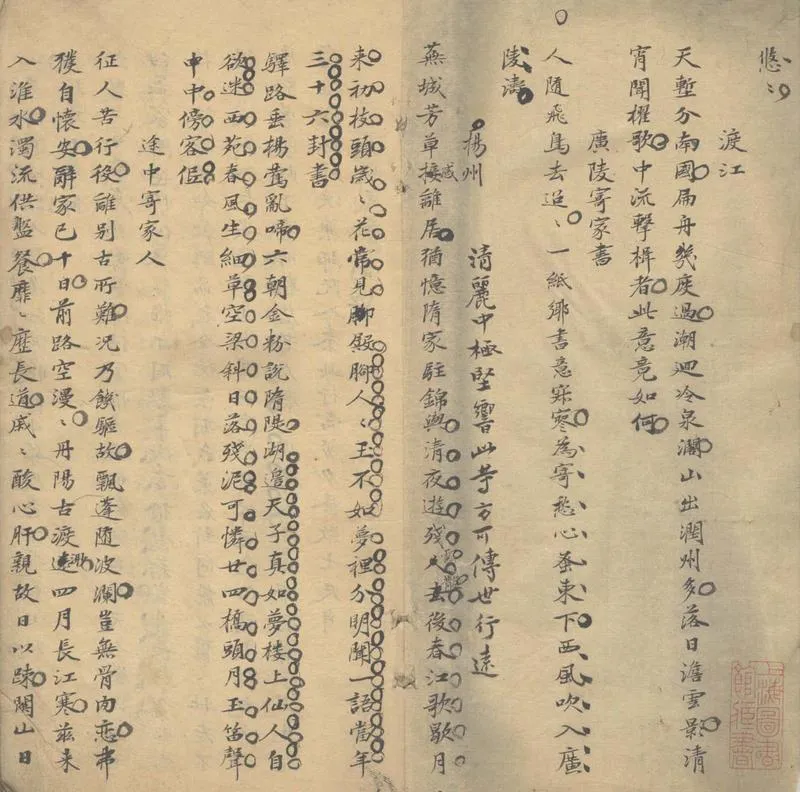 悠〻
渡江
天塹分南國扁舟幾度過潮迴冷泉瀾山出潤州多落日澹雲影清
宵聞櫂歌中流擊楫者此意竟如何
廣陵寄家書
人隨飛鳥去迢〻一紙鄉書意寂寥為寄愁心東下西風吹入廣
陵濤
揚州 清麗中極堅響此等方可傳世行遠
蕪城芳草接離居猶憶隋家駐錦輿清夜遊殘人去後春江歌歇月
來初枝頭歲〻花常見殿腳人〻玉不如夢裡分明聞一語當年
三十六封書
驛路垂楊鶯亂啼六朝金粉說隋隄湖邊天子真如夢樓上仙人自
欲迷西苑春風生細草空梁斜日落殘泥可憐廿四橋頭月玉笛聲
中中傍客低
途中寄家人
征人苦行役離別古所難況乃饑驅故飄蓬隨波瀾豈無骨肉戀弗
獲自懷安辭家已十日前路空漫〻丹陽古渡邊四月長江寒茲來
入淮水濁流供盤餐靡〻歷長道戚〻酸心肝親故日以疎關山日
上海圖書館藏書